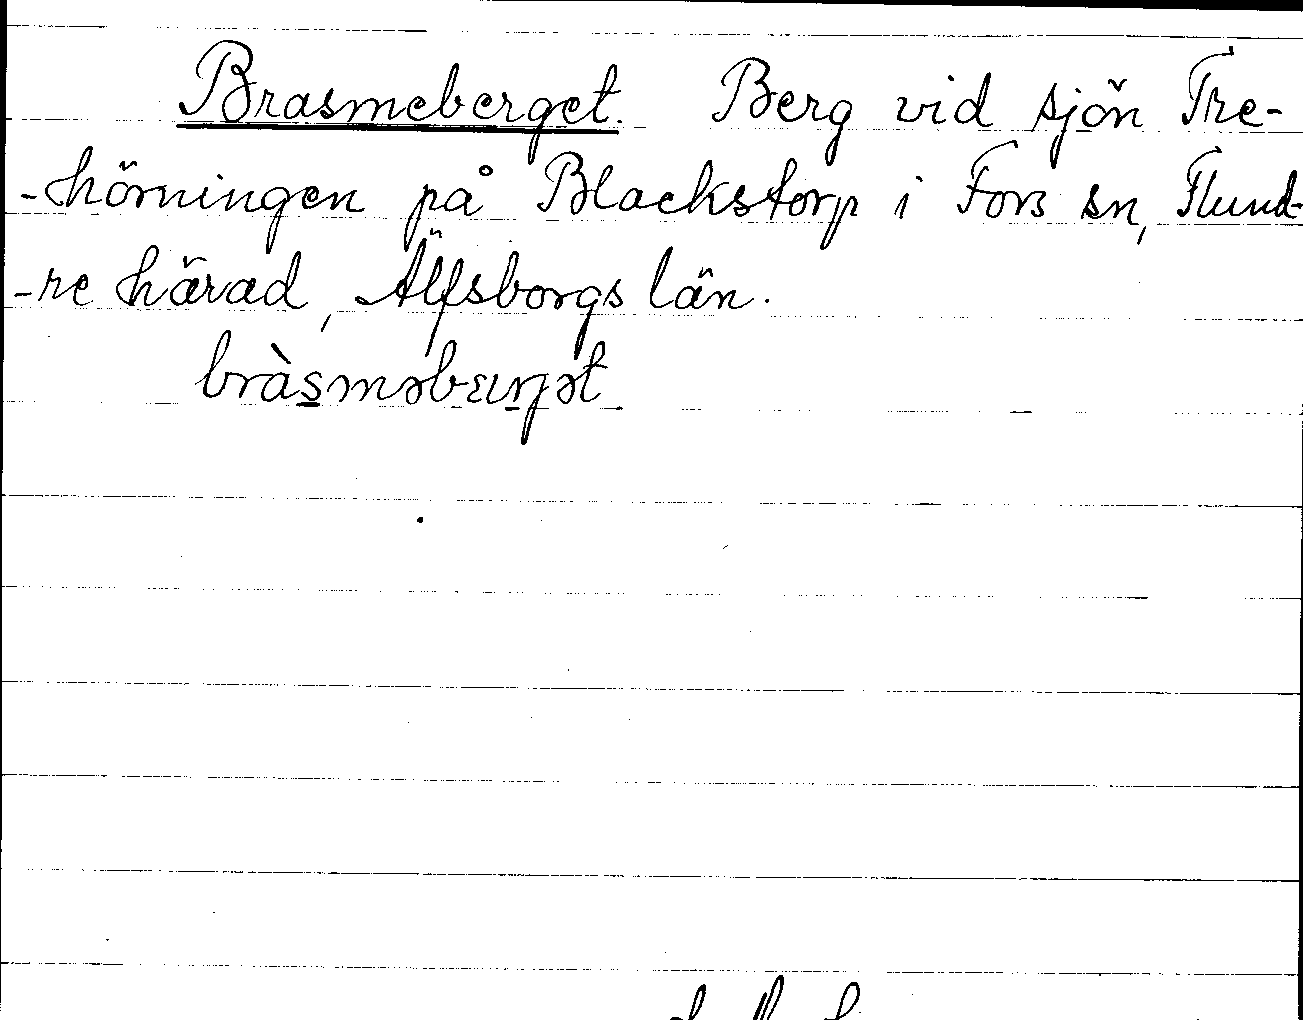 Brasmeberget. Berg vid sjön Tre-
-hörningen på Blackstorp i Fors sn, Flund-
-re härad, Älfsborgs län.